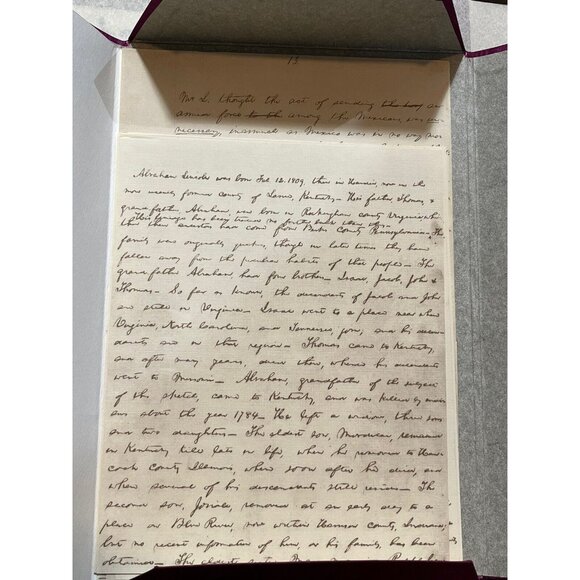 13
Mr L. thought the act of sending the army an
armed force to th among the Mexicans was un-
necessary, inasmuch as Mexico was in no way mo-
Abraham Lincoln was born Feb. 12. 1809, then in Hardin, now in the
more recently formed county of Larue, Kentucky— His father, Thomas, &
grand-father, Abraham, was born in Rockingham county Virginia, whi-
ther their ancestors had come from Berks County Pennsylvania— The
His lineage has been traced no farther back than this—
family was originally quakers, though in later times they have
fallen away from the peculiar habits of that people— The
grand-father Abraham, had four brothers— Isaac, Jacob, John &
Thomas— So far as known, the descendants of Jacob and John
are still in Virginia— Isaac went to a place near where
Virginia, North Carolina, and Tennessee, join, and his decen-
dants are in that region— Thomas came to Kentucky,
and after many years, died there, whence his decendants
went to Missouri— Abraham, grandfather of the subject
of this sketch, came to Kentucky, and was killed by indi-
ans about the year 1784— He left a widow, three sons
and two daughters— The eldest son, Mordecai, remained
in Kentucky till late in life, when he removed to Han-
cock county, Illinois, where soon after he died, and
where several of his descendants still reside— The
second son, Josiah, removed at an early day to a
place on Blue River, now within Harrison county, Indiana;
but no recent information of him, or his family, has been
obtained— The eldest sister, Mary,